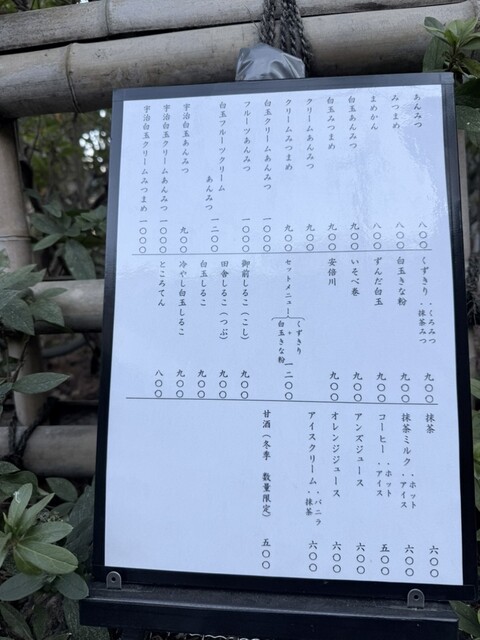 あんみつ 八〇〇
みつまめ 八〇〇
まめかん 八〇〇
白玉あんみつ 九〇〇
白玉みつまめ 九〇〇
クリームあんみつ 九〇〇
クリームみつまめ 九〇〇
白玉クリームあんみつ 一〇〇〇
フルーツあんみつ 一〇〇〇
白玉フルーツクリーム
あんみつ 一二〇〇
宇治白玉あんみつ 九〇〇
宇治白玉クリームあんみつ 一〇〇〇
宇治白玉クリームみつまめ 一〇〇〇
くずきり ・くろみつ ・抹茶みつ 九〇〇
白玉きな粉 九〇〇
ずんだ白玉 九〇〇
いそべ巻 九〇〇
安倍川 九〇〇
セットメニュー くずきり + 白玉きな粉 一二〇〇
御前しるこ(こし) 九〇〇
田舎しるこ(つぶ) 九〇〇
白玉しるこ 九〇〇
冷やし白玉しるこ 九〇〇
ところてん 八〇〇
抹茶 六〇〇
抹茶ミルク ・ホット ・アイス 六〇〇
コーヒー ・ホット ・アイス 五〇〇
アンズジュース 六〇〇
オレンジジュース 六〇〇
アイスクリーム ・バニラ ・抹茶 六〇〇
甘酒(冬季 数量限定) 五〇〇